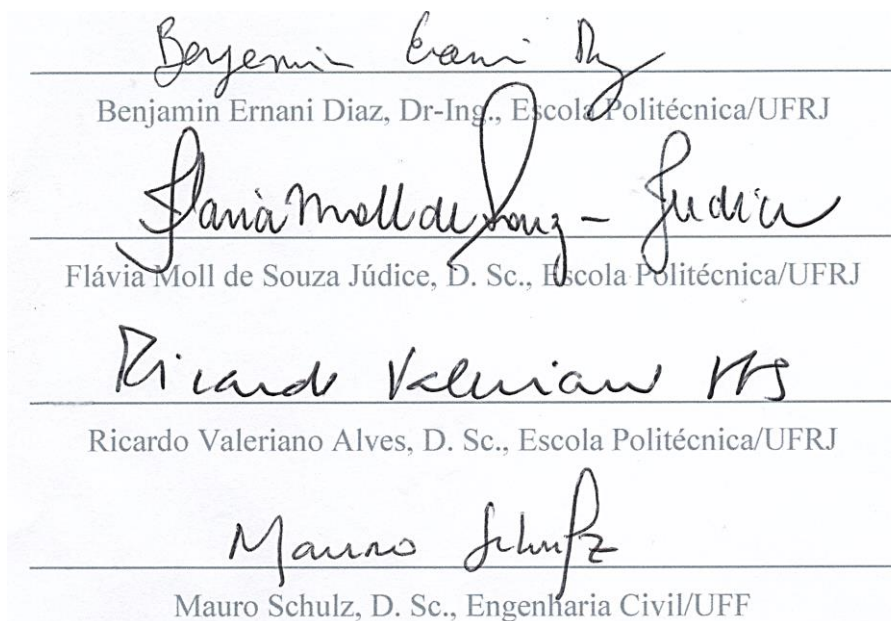 Benjamin Ernani Diaz
Benjamin Ernani Diaz, Dr-Ing., Escola Politécnica/UFRJ
Flavia Moll de Souza Judice
Flávia Moll de Souza Júdice, D. Sc., Escola Politécnica/UFRJ
Ricardo Valeriano
Ricardo Valeriano Alves, D. Sc., Escola Politécnica/UFRJ
Mauro Schulz
Mauro Schulz, D. Sc., Engenharia Civil/UFF